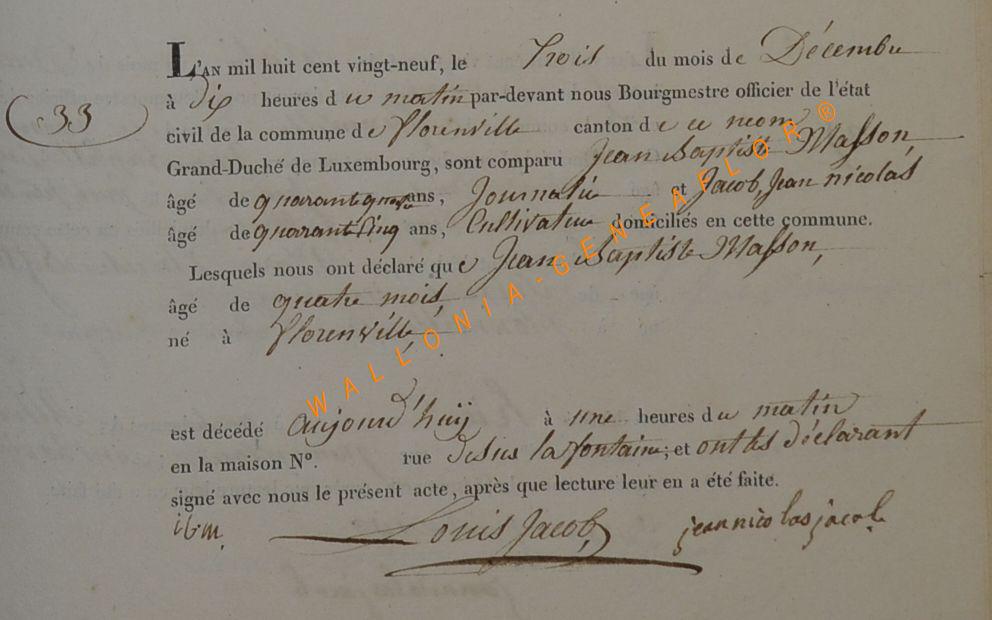 L'AN mil huit cent vingt-neuf, le Trois du mois de Décembre
à dix heures du matin par-devant nous Bourgmestre officier de l'état
33
civil de la commune de florenville canton de ce nom
Grand-Duché de Luxembourg, sont comparu Jean Baptiste Masson,
âgé de ans, Journalier et Jacob, Jean nicolas
âgé de quarant Cinq ans, Cultivateur domiciliés en cette commune.
Lesquels nous ont déclaré que Jean Baptiste Masson,
âgé de quatre mois,
né à florenville,
WALLONIA-GENEAFLOR®
est décédé aujourd'huÿ à une heures du matin
en la maison N°. rue desus la fontaine; et ont les déclarant
signé avec nous le présent acte, après que lecture leur en a été faite.
ibm. Louis Jacob, jeannicolas jacob